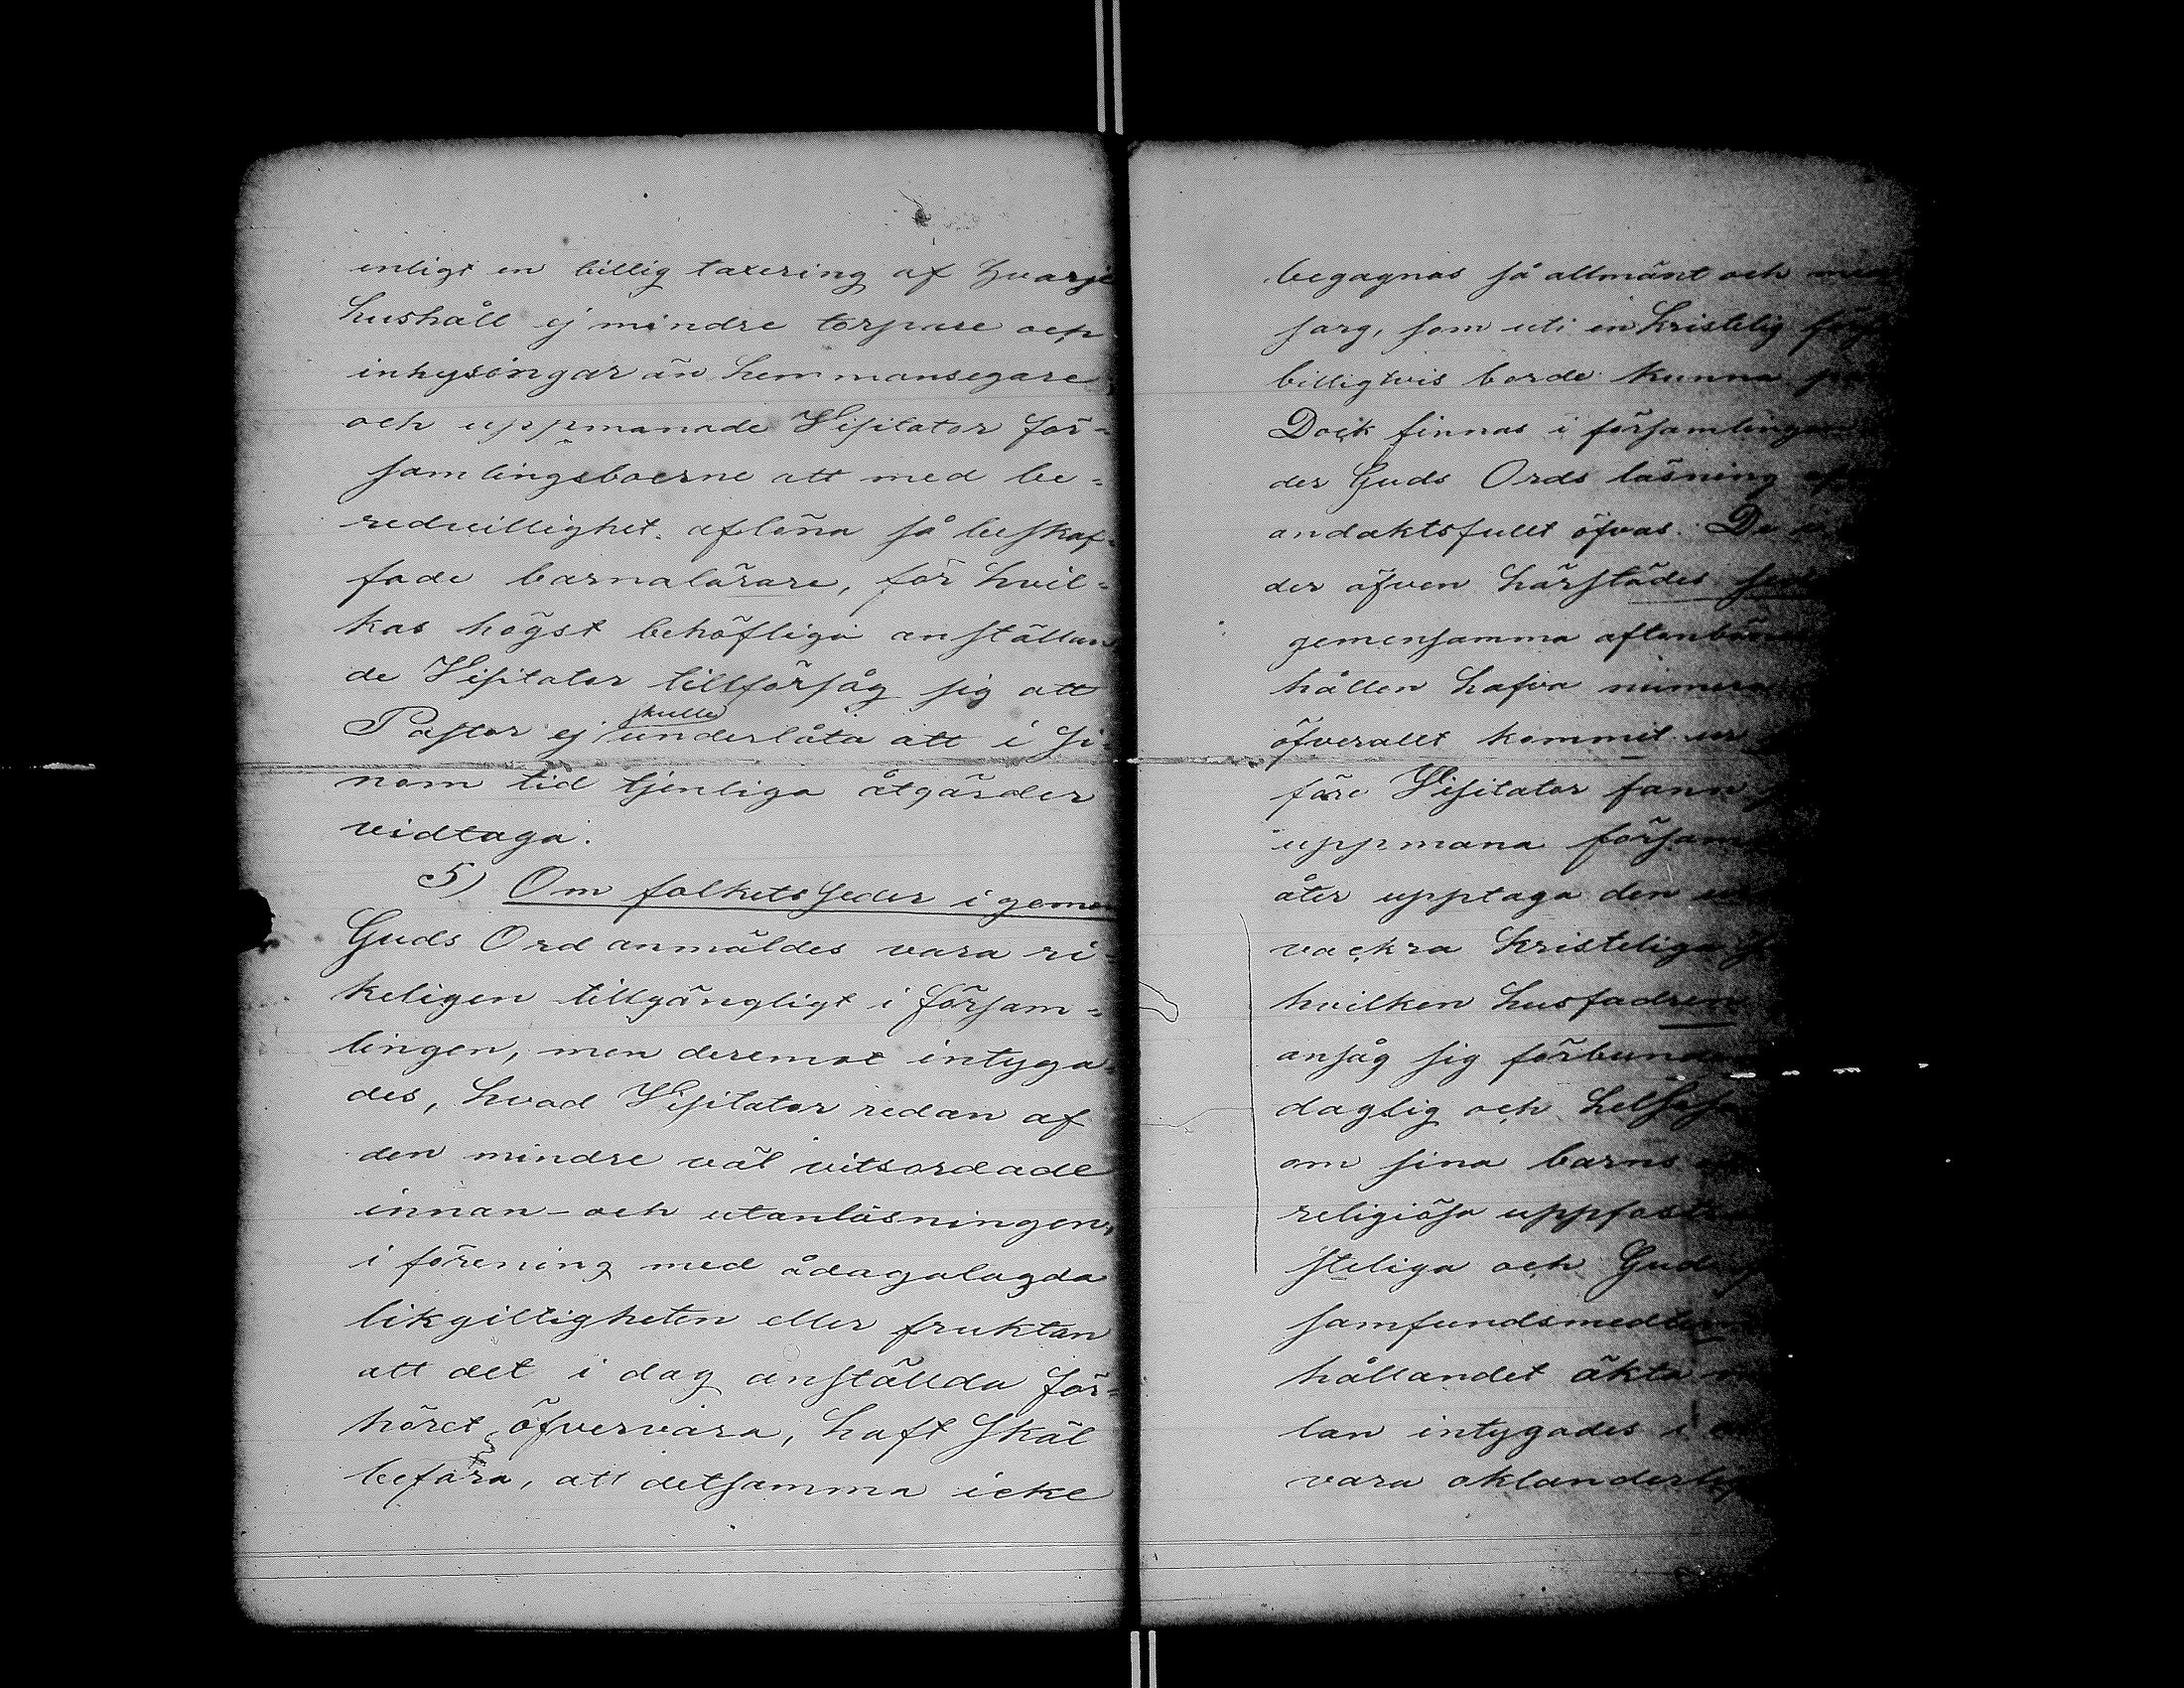 enligt en billig taxering af hvarje
hushåll ej mindre torpare och
inhysingar än hemmansegare
och uppmanade Visitator för-
samlingsboerne att med be-
redvillighet aflöna så beskaf-
fade barnalärare, för hvil-
kas högst behöfliga anställan
de Visitator tillförsåg sig att
skulle
Pastor ej underlåta att i si
nom tid tjenliga åtgärder
vidtaga.
5) Om folkets seder i gemen
Guds Ord anmäldes vara ri-
keligen tillgängligt i försam-
lingen, men deremot intyga-
des, hvad Visitator redan af
den mindre väl vitsordade
innan- och utanläsningen,
i förening med ådagalagda
likgiltigheten eller fruktan
att det i dag anställda för-
höret öfvervara, haft skäl
befara, att detsamma icke
begagnas så allmänt och med
sorg, som uti en kristelig
billigtvis borde kunna
Dock finnas i församlingen
der Guds Ords läsning
andaktsfullt öfvas. De
der äfven härstädes
gemensamma aftonbön
hållen hafva numera
öfverallt kommit ur
före Visitator fann
uppmana försam
åter upptaga den
vackra kristeliga
hvilken husfadren
ansåg sig förbunden
daglig och
om sina barns
religiösa uppfostran
steliga och Gud
samfundsmedlem
hållandet äkta
lan intygades i
vara oklanderlig